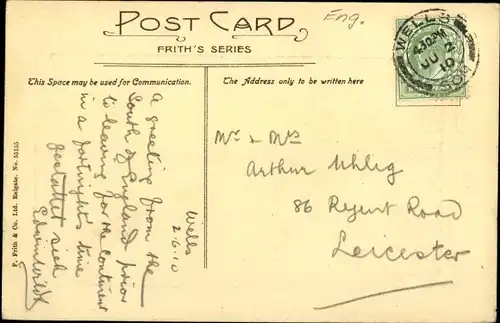 POST CARD
Eng.
FRITH'S SERIES
This Space may be used for Communication.
The Address only to be written here
WELLS
4.30PM
JU 2
10
SOM
Wells
2.6.10
A greeting from the
South of England prior
to leaving for the continent
in a fortnight's time
gestattet sich
Mr & Mrs
Arthur Uhlig
86 Regent Road
Leicester
F. Frith & Co. Ltd. Reigate. No. 55155